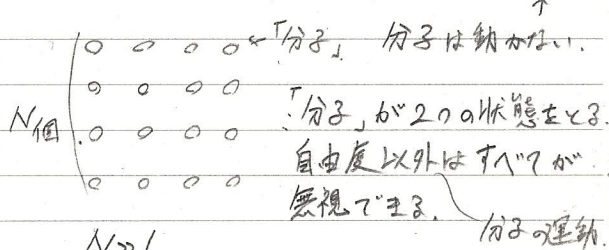 「分子」 分子は動かない.
「分子」が2つの状態をとる.
N個
自由度以外はすべてが
無視できる.
分子の運動
N≫1